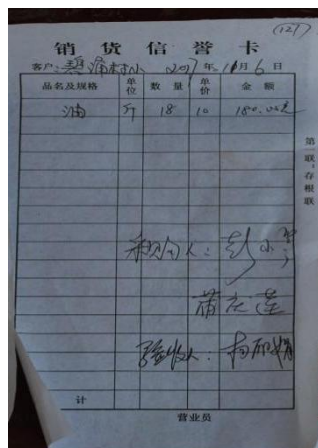 (127)
销货信誉卡
客户:碧涌村小 2017年11月6日
品名及规格 单位 数量 单价 金额
油 斤 18 10 180.00元
采购人:彭小
蒲元莲
验收人:向丽娟
计
营业员
第一联:存根联